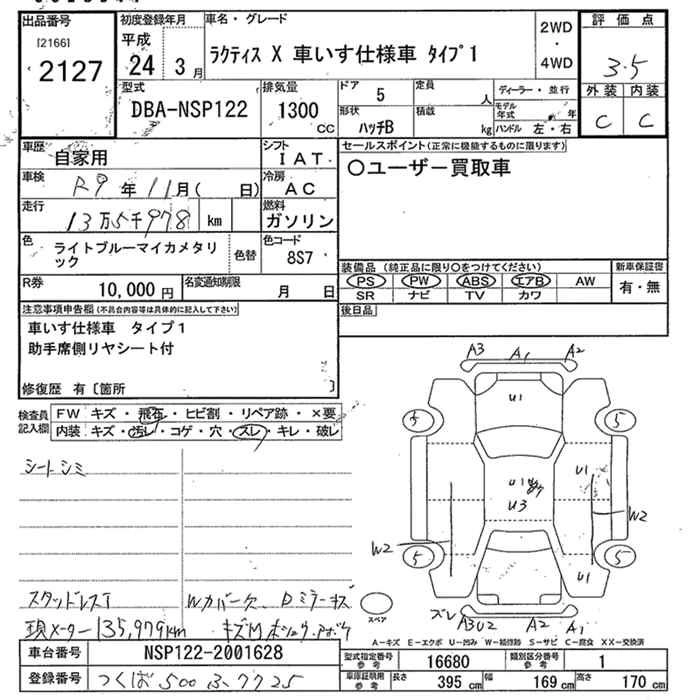 出品番号
[2166]
2127
初度登録年月
平成
24 3 月
車名・グレード
ラクティス X 車いす仕様車 タイプ1
2WD
・
4WD
評価点
3.5
外装 内装
C C
型式
DBA-NSP122
排気量
1300
CC
ドア
5
形状
ハッチB
定員
人
積載
kg
ディーラー・並行
モデル年式 年
ハンドル 左・右
車歴
自家用
シフト
IAT
車検
R9 年 11 月 ( 日)
冷房
AC
走行
13万5千978 km
燃料
ガソリン
色
ライトブルーマイカメタリ
ック
色替
色コード
8S7
R券
10,000 円
名変通知期限
月 日
セールスポイント(正常に機能するものに限ります)
○ユーザー買取車
装備品 (純正品に限り○をつけてください)
PS PW ABS エアB AW
SR ナビ TV カワ
新車保証書
有・無
後日品
注意事項申告欄(不具合内容等は具体的に記入して下さい)
車いす仕様車 タイプ1
助手席側リヤシート付
修復歴 有〔箇所 〕
検査員
記入欄
FW キズ・飛石・ヒビ割・リペア跡・×要
内装 キズ・汚レ・コゲ・穴・スレ・キレ・破レ
シートシミ
スタッドレスT
Wカバー欠、Dミラーキズ
現メーター135,979km
A3 A1 A2
U1
5 5
U1
U1
U3
W2
W2
5 5
U1
スペア
ズレ
A3U2 A2 A1
A-キズ E-エクボ U-凹み W-補修跡 S-サビ C-腐食 XX-交換済
車台番号
NSP122-2001628
登録番号
つくば 500 ふ 7725
型式指定番号
参考
16680
類別区分番号
参考
1
車庫証明用
参考
長さ
395 cm
幅
169 cm
高さ
170 cm